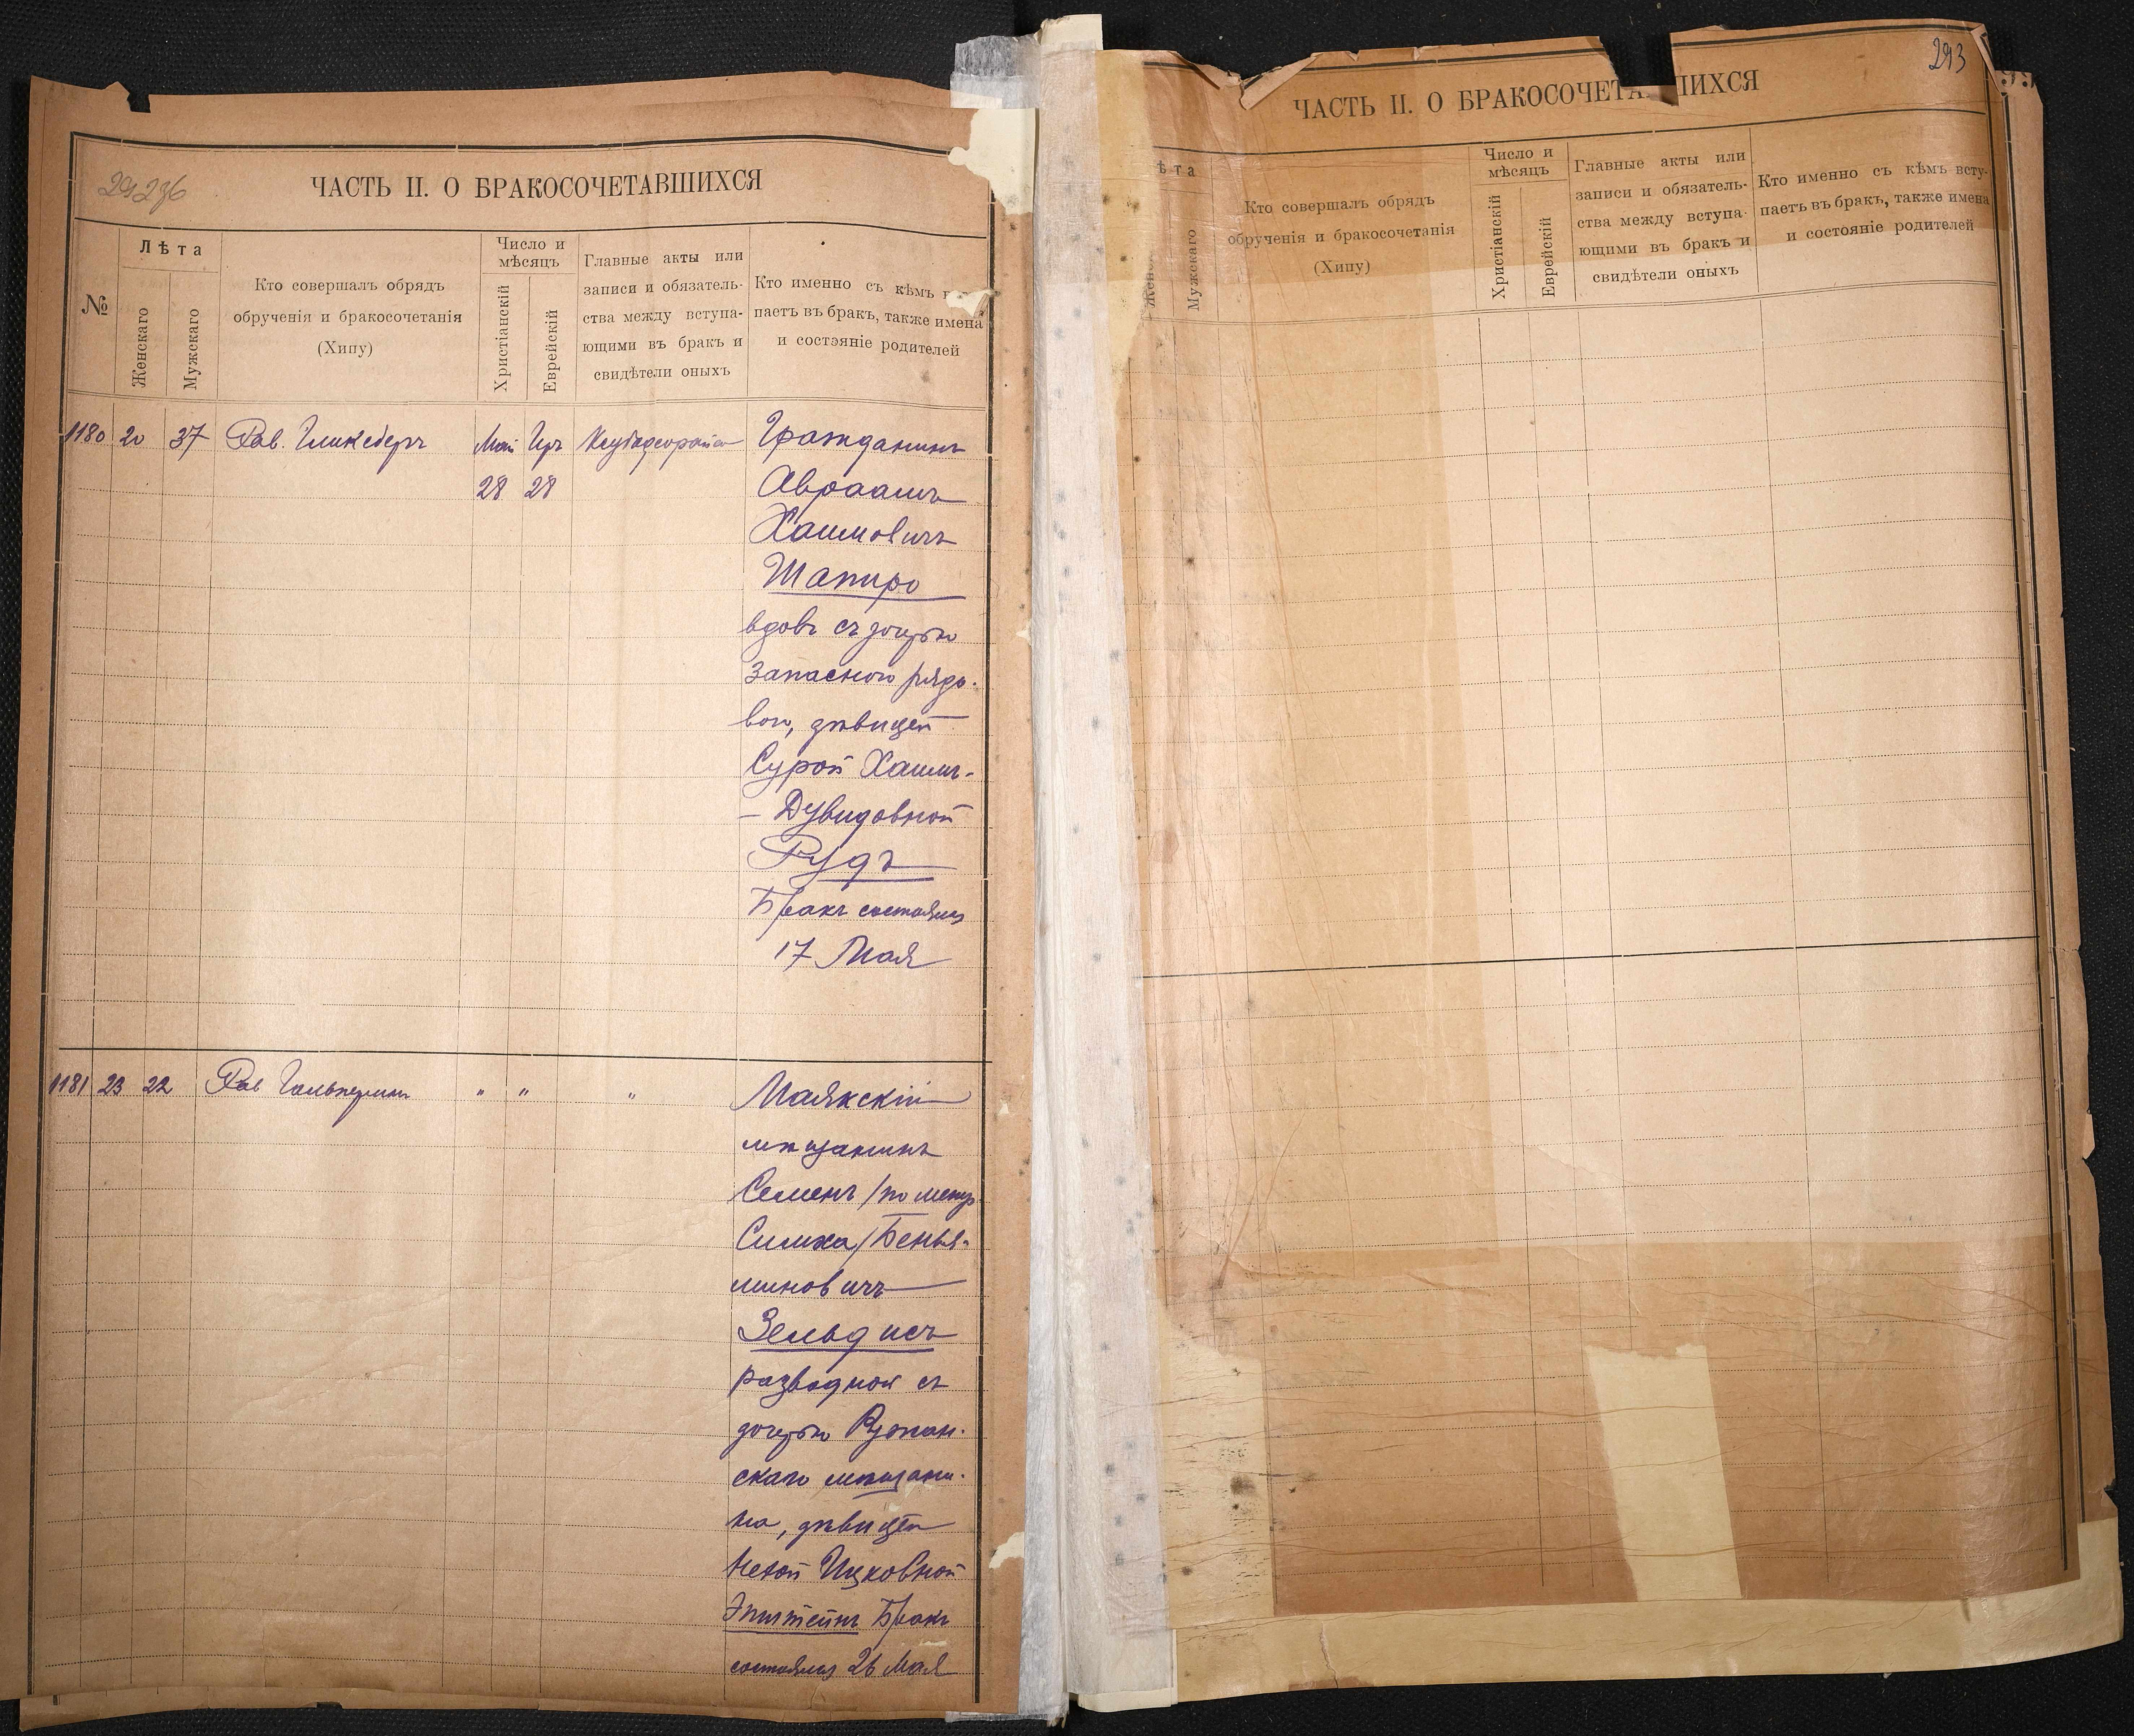 29296
ЧАСТЬ II. О БРАКОСОЧЕТАВШИХСЯ
№
Лѣта
Женскаго
Мужскаго
Кто совершалъ обрядъ
обрученія и бракосочетанія
(Хипу)
Число и
мѣсяцъ
Христіанскій
Еврейскій
Главные акты или
записи и обязатель-
ства между вступа-
ющими въ бракъ и
свидѣтели оныхъ
Кто именно съ кѣмъ
паетъ въ бракъ, также имена
и состояніе родителей
1180 20 37 Рав. Гликсбергъ Май Іръ
28 28
Гражданинъ
Авраамъ
Хаимовичъ
Шапиро
вдовъ съ дочерью
запасного рядо-
вого, дѣвицей
Сурой Хаимъ-
-Дувидовной
Рудъ
Бракъ состоялся
17 Мая
1181 23 22 Рав Гальперинъ " " "
Маякскій
мѣщанинъ
Семенъ /по метр
Симха/ Бенья-
миновичъ
Зельдисъ
разводной съ
дочерью
скаго мѣщани-
на, дѣвицей
Ицковной
Эпштейнъ Бракъ
состоялся 26 Мая
293
ЧАСТЬ II. О БРАКОСОЧЕТА ШИХСЯ
ѣта
Женск
Мужскаго
Кто совершалъ обрядъ
обрученія и бракосочетанія
(Хипу)
Число и
мѣсяцъ
Христіанскій
Еврейскій
Главные акты или
записи и обязатель-
ства между вступа-
ющими въ бракъ и
свидѣтели оныхъ
Кто именно съ кѣмъ всту-
паетъ въ бракъ, также имена
и состояніе родителей